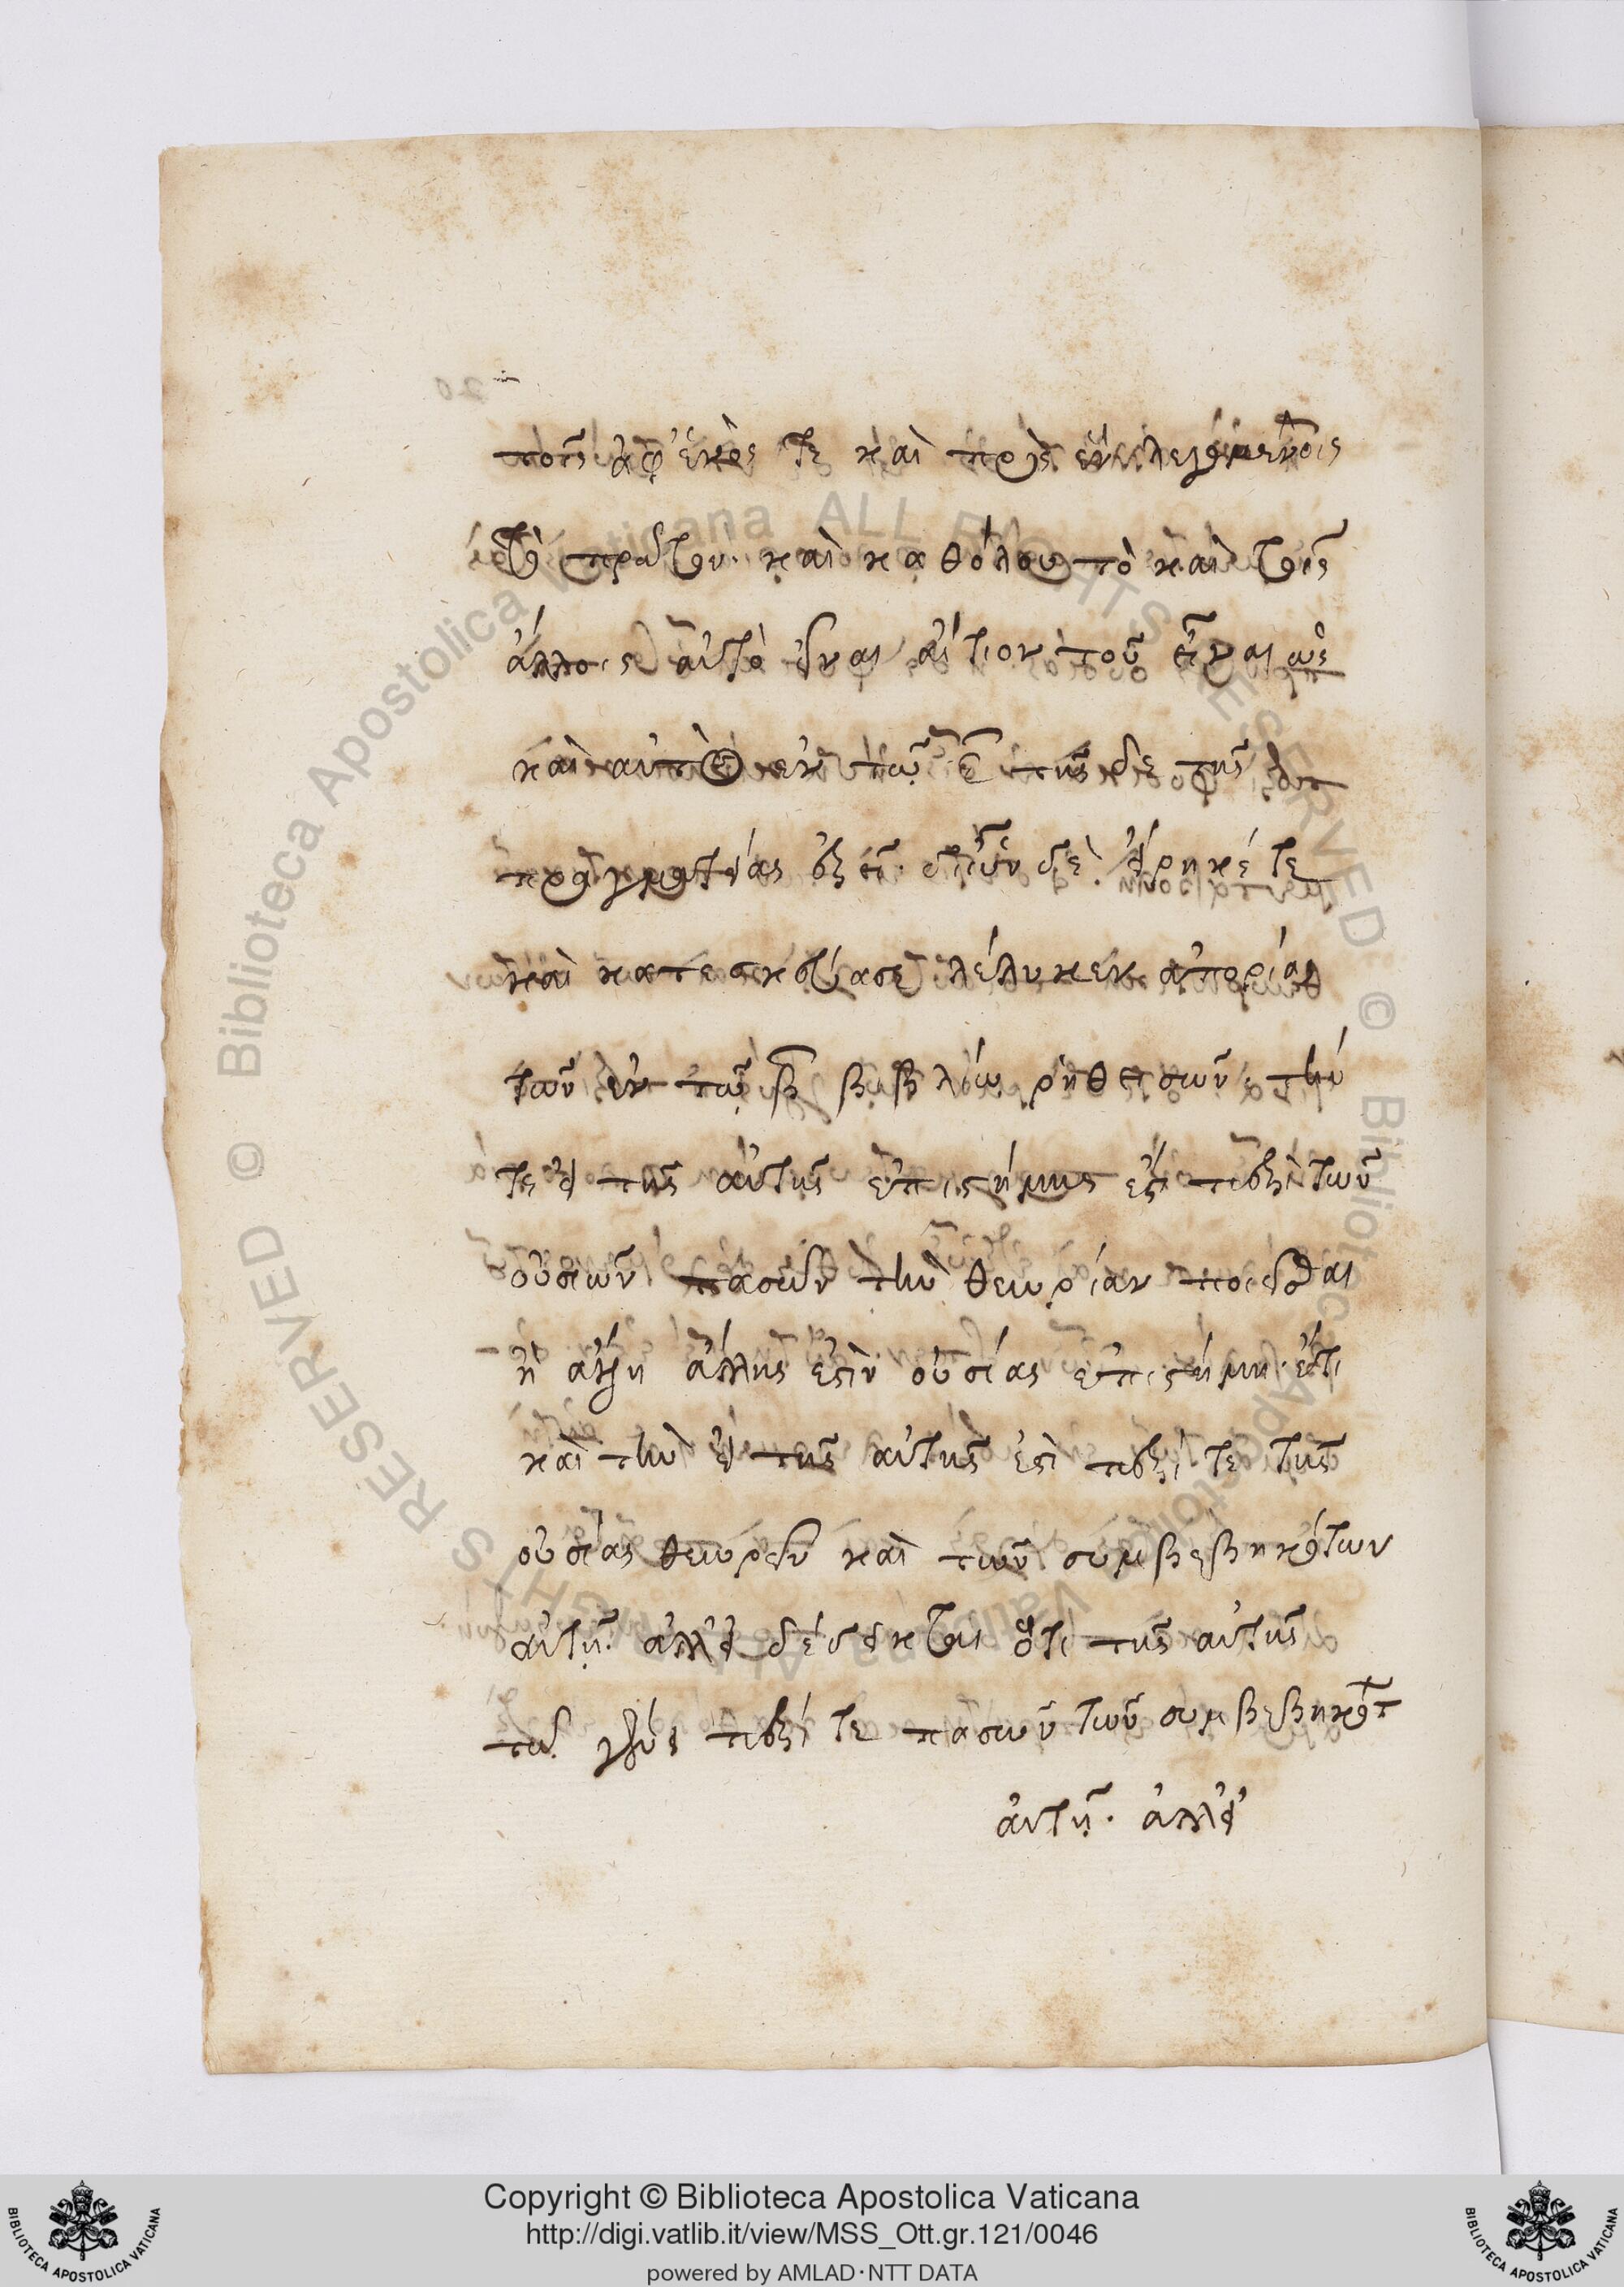 τοῖς ἀφ' ἑνός τε καὶ πρὸς ἓν λεγομένοις
τὸ πρῶτον καὶ καθόλου τὸ καὶ τοῖς
ἄλλοις αὐτὸ εἶναι αἴτιον τοῦ εἶναι ὡς
καὶ αὐτὸς ἐν τῷ ε̄ τῆς δε τῆς
πραγματείας δε. εἴρηκέ τε
καὶ κατεσκεύασε λέλυκεν ἀπορίας
τῶν ἐν τῷ β̄ βιβλίῳ ῥηθεισῶν· τήν
τε εἰ τῆς αὐτῆς ἐπιστήμης ἐστὶ περὶ τῶν
οὐσιῶν πασῶν τὴν θεωρίαν ποιεῖσθαι
ἢ ἄλλη ἄλλης ἐστὶν οὐσίας ἐπιστήμη. ἔτι
καὶ τὴν εἰ τῆς αὐτῆς ἐστὶ περί τε τῆς
οὐσίας θεωρεῖν καὶ τῶν συμβεβηκότων
αὐτῇ. ἀλλ' εἰ δέδεικται ὅτι τῆς αὐτῆς
τῷ γένει περί τε πασῶν τῶν συμβεβηκότ
αὐτῇ. ἀλλ' εἰ
Copyright © Biblioteca Apostolica Vaticana
http://digi.vatlib.it/view/MSS_Ott.gr.121/0046
powered by AMLAD·NTT DATA
BIBLIOTECA APOSTOLICA VATICANA
BIBLIOTECA APOSTOLICA VATICANA
© Biblioteca Apostolica Vaticana ALL RIGHTS RESERVED
© Biblioteca Apostolica Vaticana ALL RIGHTS RESERVED